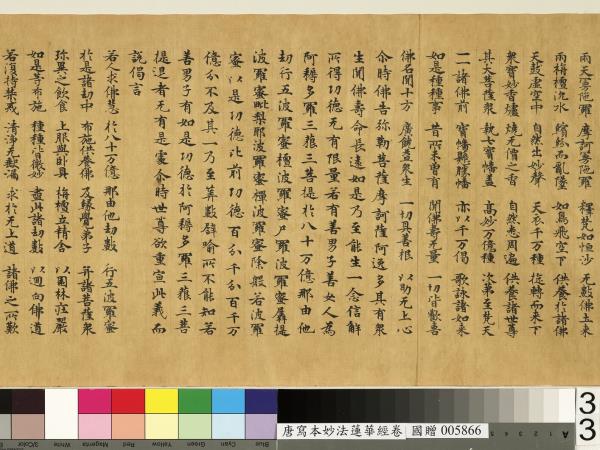 雨天曼陀羅 摩訶曼陀羅 釋梵如恒沙 无數佛土來
雨栴檀沉水 繽紛而亂墜 如鳥飛空下 供養於諸佛
天鼓虛空中 自然出妙聲 天衣千万種 旋轉而來下
衆寶妙香爐 燒无價之香 自然悉周遍 供養諸世尊
其大菩薩衆 執七寶幡蓋 高妙万億種 次第至梵天
一一諸佛前 寶幢懸勝幡 亦以千万偈 歌詠諸如來
如是種種事 昔所未曾有 聞佛壽无量 一切皆歡喜
佛名聞十方 廣饒益衆生 一切具善根 以助无上心
尒時佛告弥勒菩薩摩訶薩阿逸多其有衆
生聞佛壽命長遠如是乃至能生一念信解
所得功德无有限量若有善男子善女人為
阿耨多羅三藐三菩提於八十万億那由他
劫行五波羅蜜檀波羅蜜尸羅波羅蜜羼提
波羅蜜毗梨耶波羅蜜禪波羅蜜除般若波羅
蜜以是功德比前功德百分千分百千万
億分不及其一乃至筭數譬喻所不能知若
善男子有如是功德於阿耨多羅三藐三菩
提退者无有是處尒時世尊欲重宣此義而
說偈言
若人求佛慧 於八十万億 那由他劫數 行五波羅蜜
於是諸劫中 布施供養佛 及緣覺弟子 并諸菩薩衆
珎異之飲食 上服與卧具 栴檀立精舍 以園林莊嚴
如是等布施 種種皆微妙 盡此諸劫數 以迴向佛道
若復持禁戒 清淨无缺漏 求於无上道 諸佛之所歎
3/Color
White
Magenta
Red
Yellow
Green
Cyan
Blue
唐寫本妙法蓮華經卷 國贈 005866
5 4 3 2 1 A
33